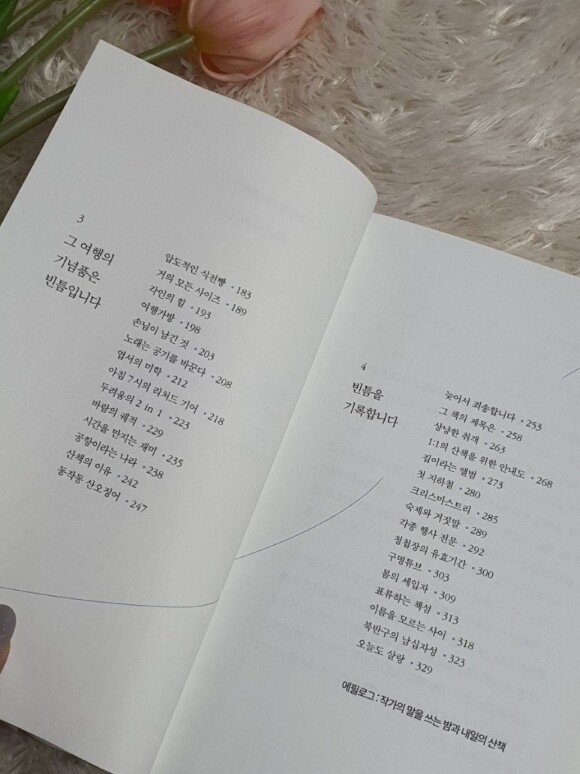 3
그 여행의
기념품은
빈틈입니다
압도적인 식전빵 • 183
거의 모든 사이즈 • 189
각인의 힘 • 193
여행가방 • 198
손님이 남긴 것 • 203
노래는 공기를 바꾼다 • 208
엽서의 미학 • 212
아침 7시의 리처드 기어 • 218
두려움의 2 in 1 • 223
바람의 궤적 • 229
시간을 반지는 재미 • 235
공항이라는 나라 • 238
산책의 이유 • 242
동작동 산오징어 • 247
4
빈틈을
기록합니다
늦어서 죄송합니다 • 253
그 책의 제목은 • 258
상냥한 취객 • 263
1:1의 산책을 위한 안내도 • 268
집이라는 앨범 • 273
첫 지하철 • 280
크리스마스트리 • 285
숙제와 거짓말 • 289
각종 행사 전문 • 292
청첩장의 유효기간 • 300
구명튜브 • 303
봄의 세입자 • 309
표류하는 책섬 • 313
이름을 모르는 사이 • 318
북반구의 남십자성 • 323
오늘도 살랑 • 329
에필로그 : 작가의 말을 쓰는 밤과 내일의 산책